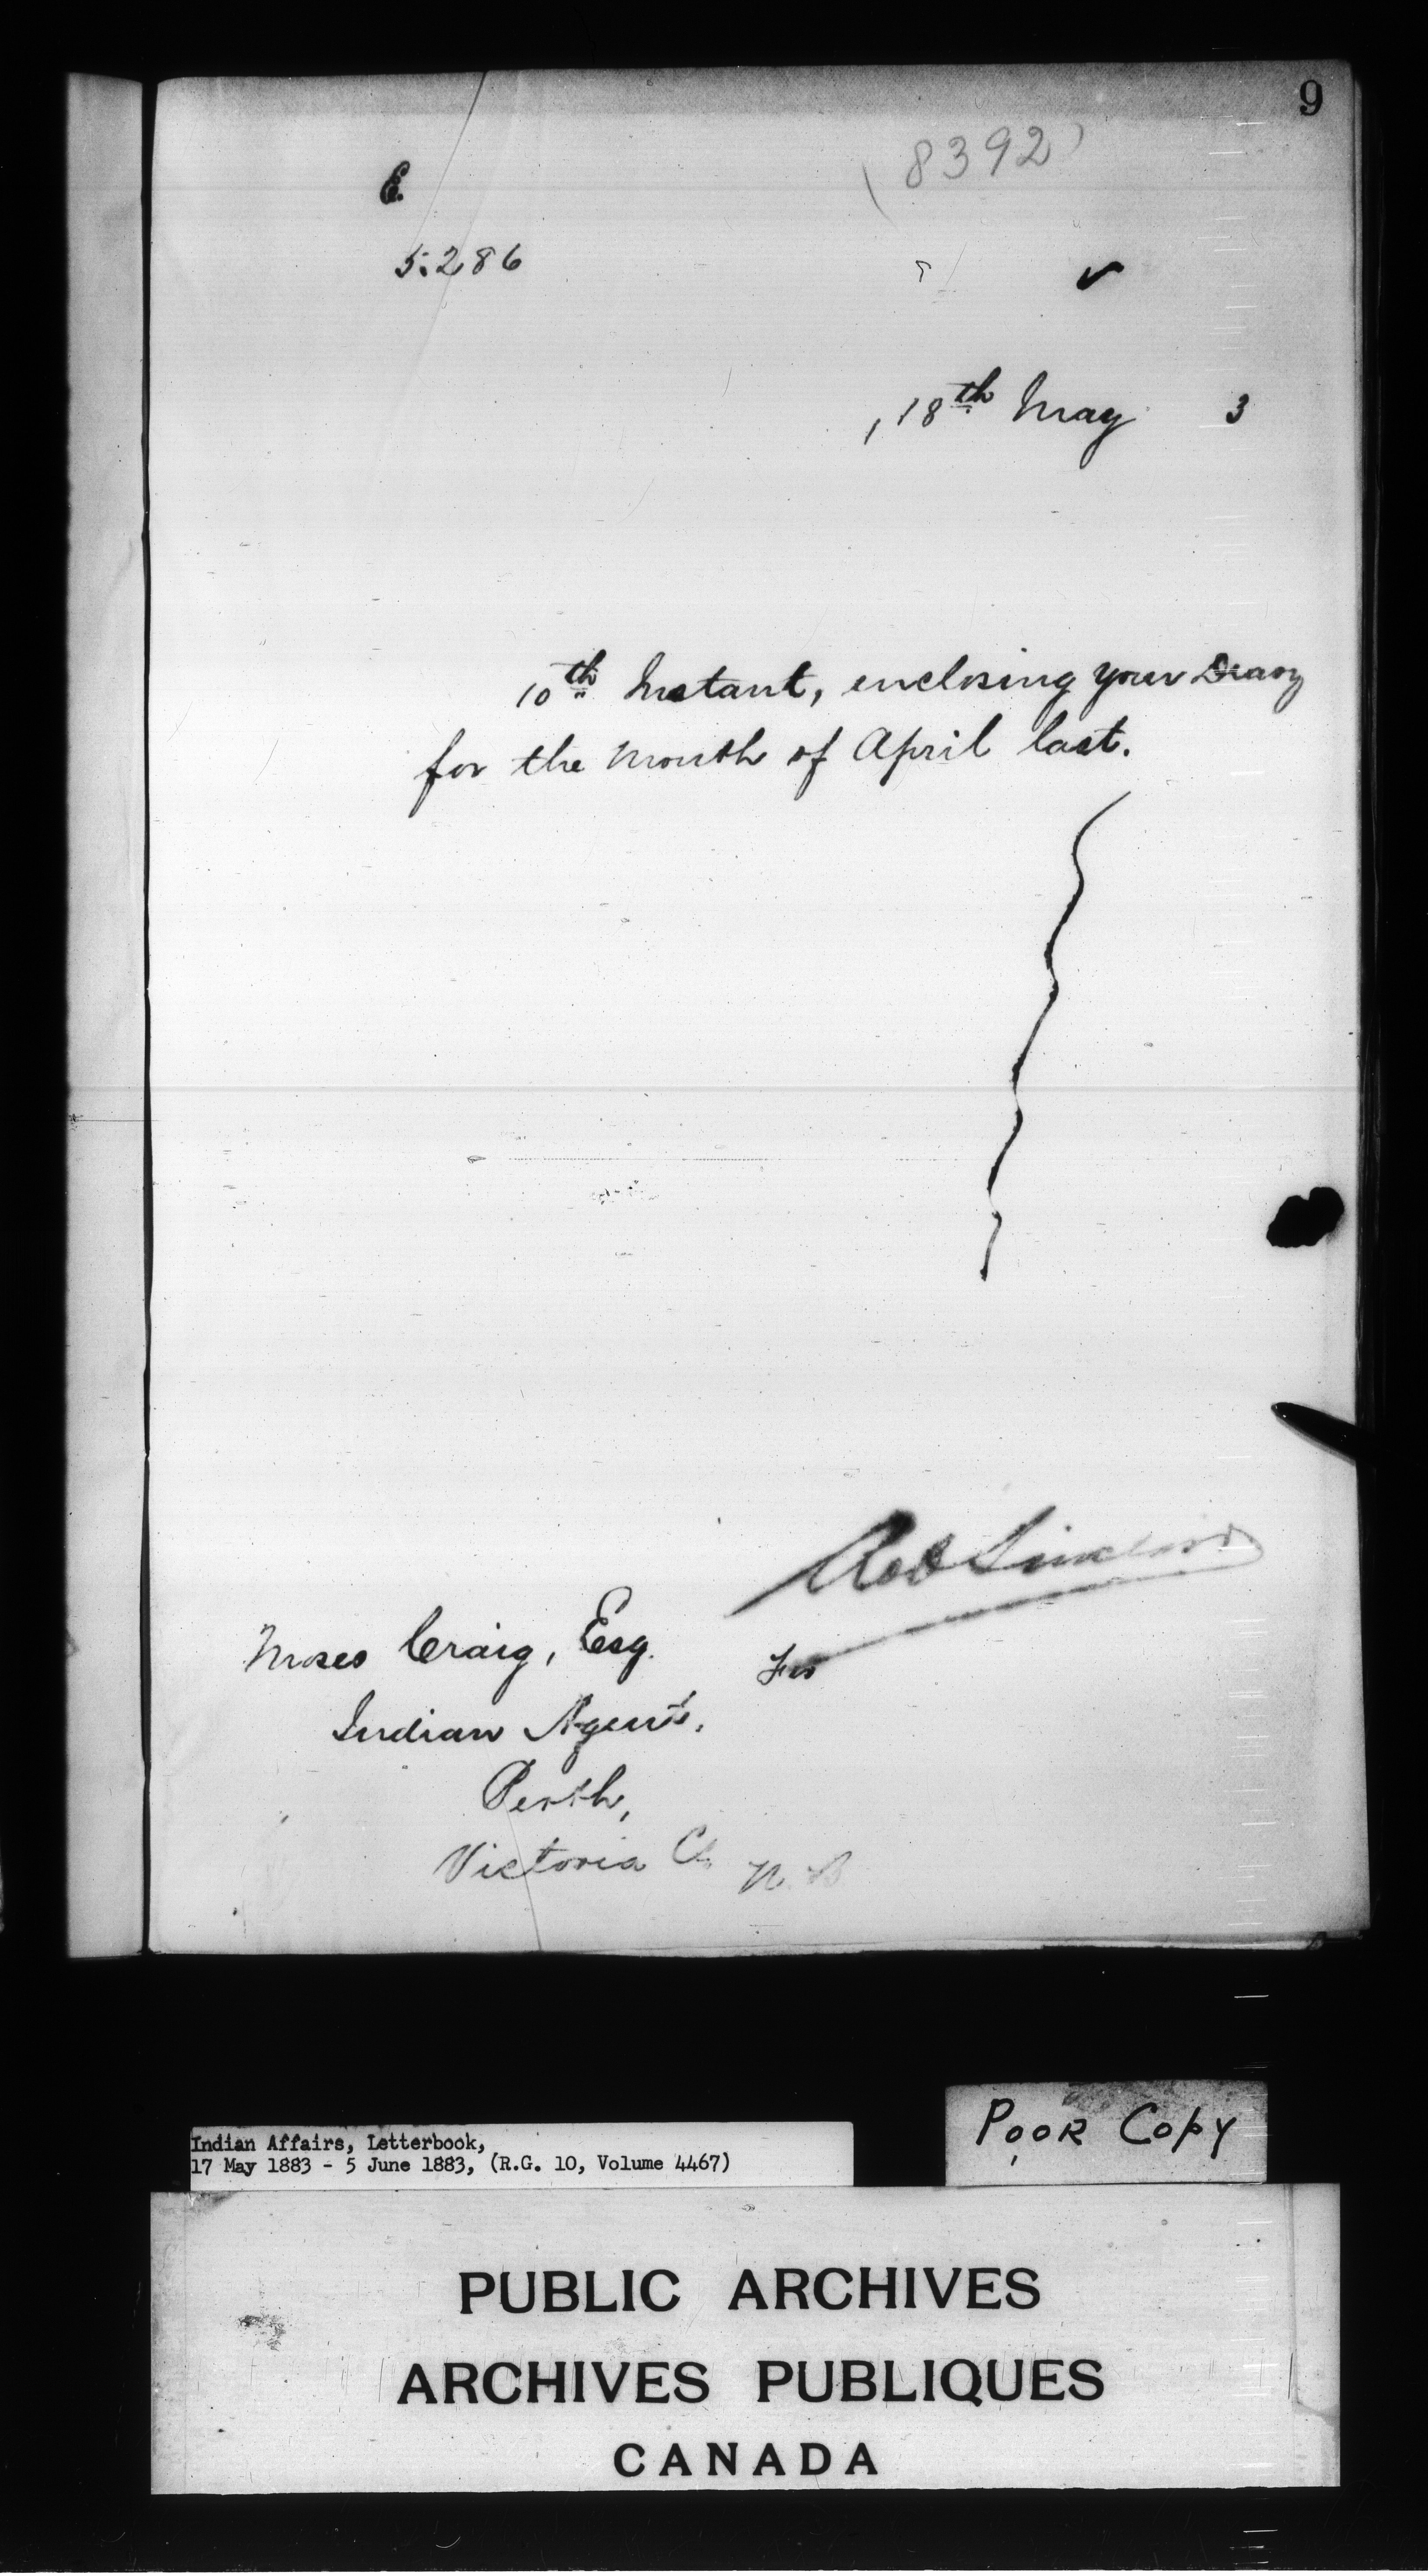 9
(8392)
E.
5.286
✓
, 18th May 3
10th Instant, enclosing your Diary
for the Month of April last.
Rob Sinclair
For
Moses Craig, Esq.
Indian Agent,
Perth,
Victoria Co. N.B
Poor Copy
Indian Affairs, Letterbook,
17 May 1883 - 5 June 1883, (R.G. 10, Volume 4467)
PUBLIC ARCHIVES
ARCHIVES PUBLIQUES
CANADA